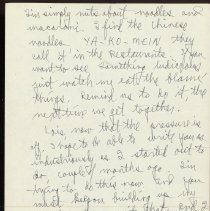 I'm simply nuts about noodles and
macaroni. I find the Chinese
noodles YA-KO-MEIN they
call it in the restaurants. If you
want to see something ludicrous
just watch me eat the blame
things. Remind us to do it the
next time we get together.
Lois, now that the pressure is
off, I hope to be able to write you as
industriously as I started out to
do, couple months ago. I'm
trying to do they now. And you
must keep on building up my